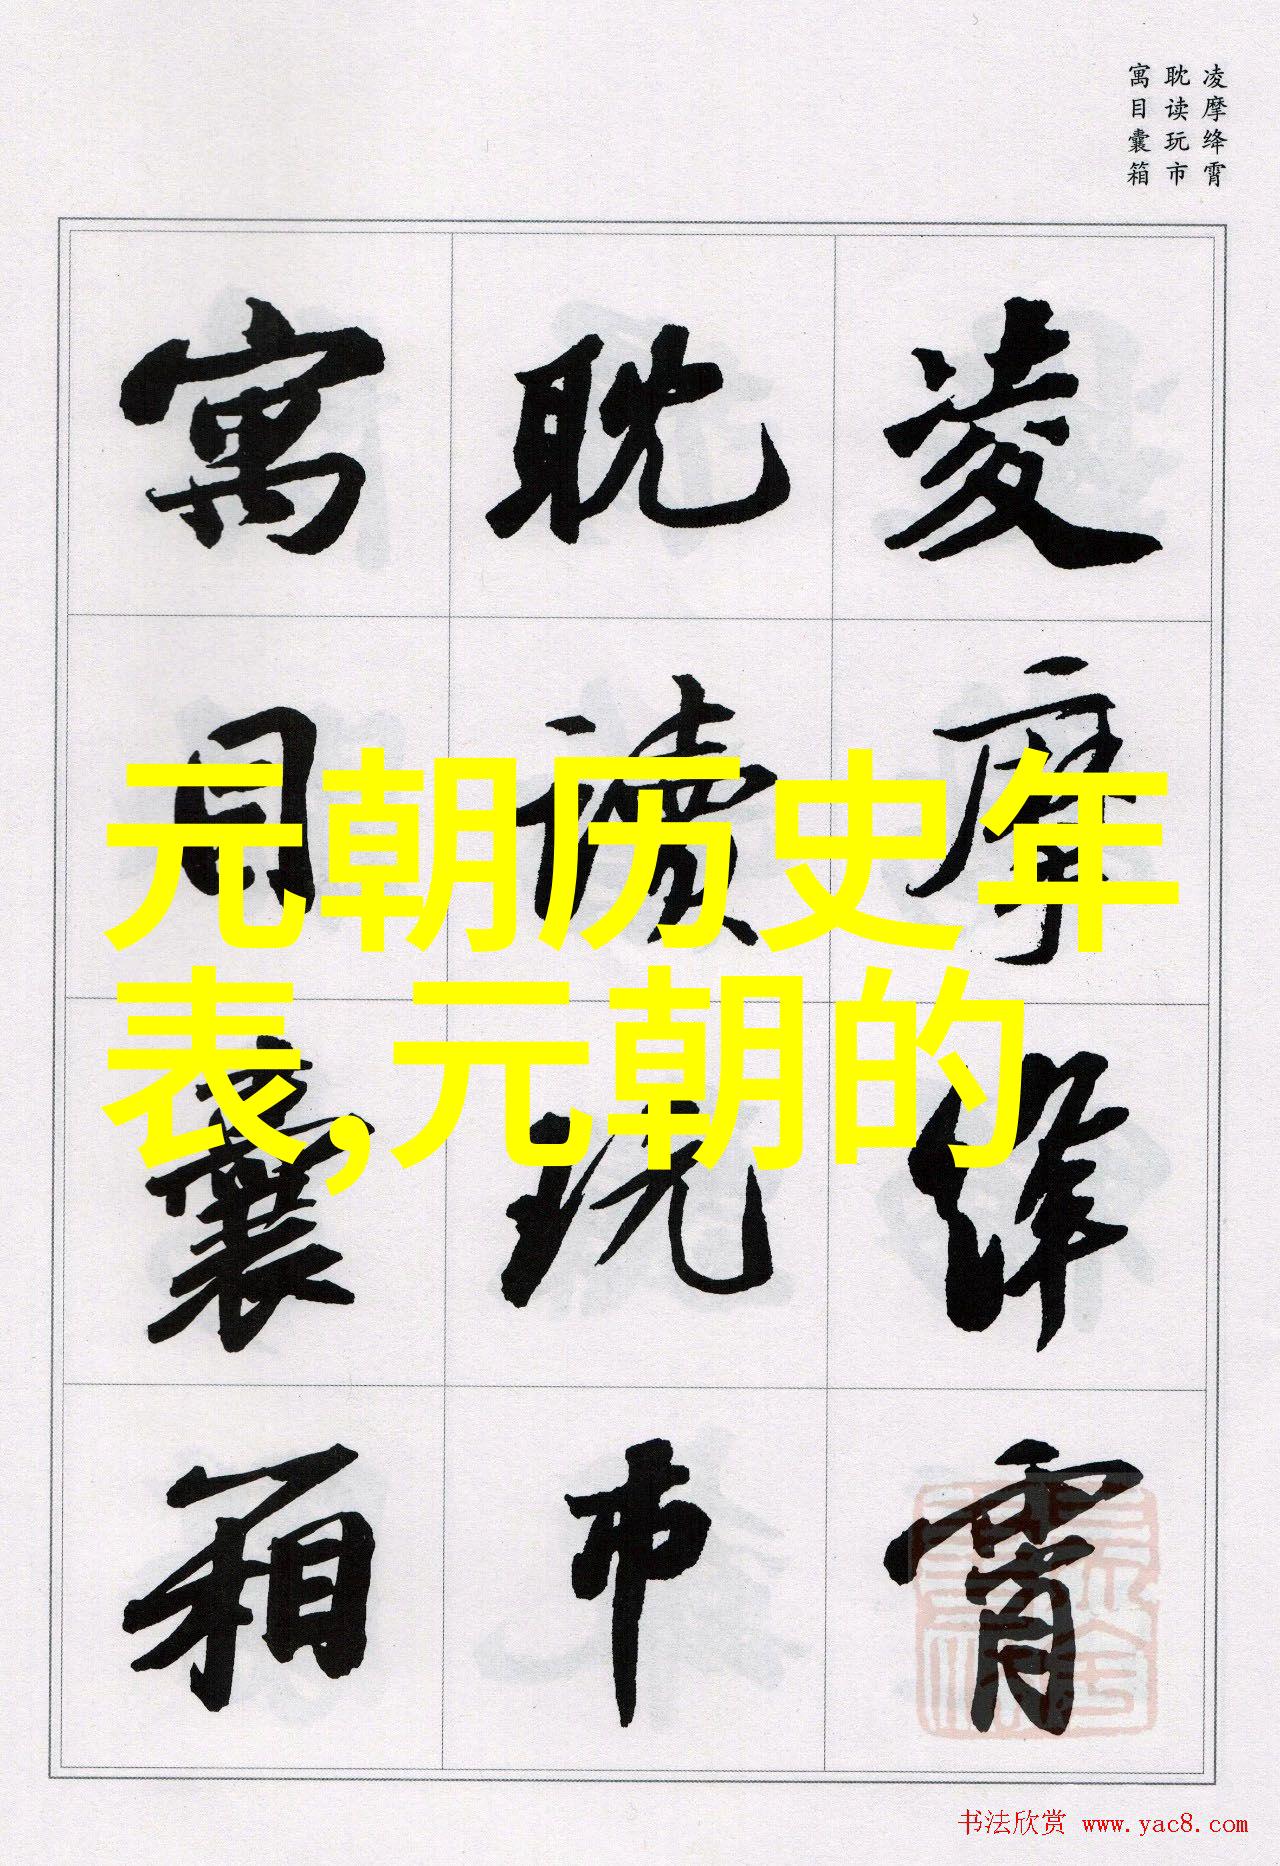 凌摩绛霄
耽读玩市
寓目囊箱
凌摩绛霄
耽读玩市
寓目囊箱
元朝历史年
表,元朝的
书法欣赏 www.yac8.com